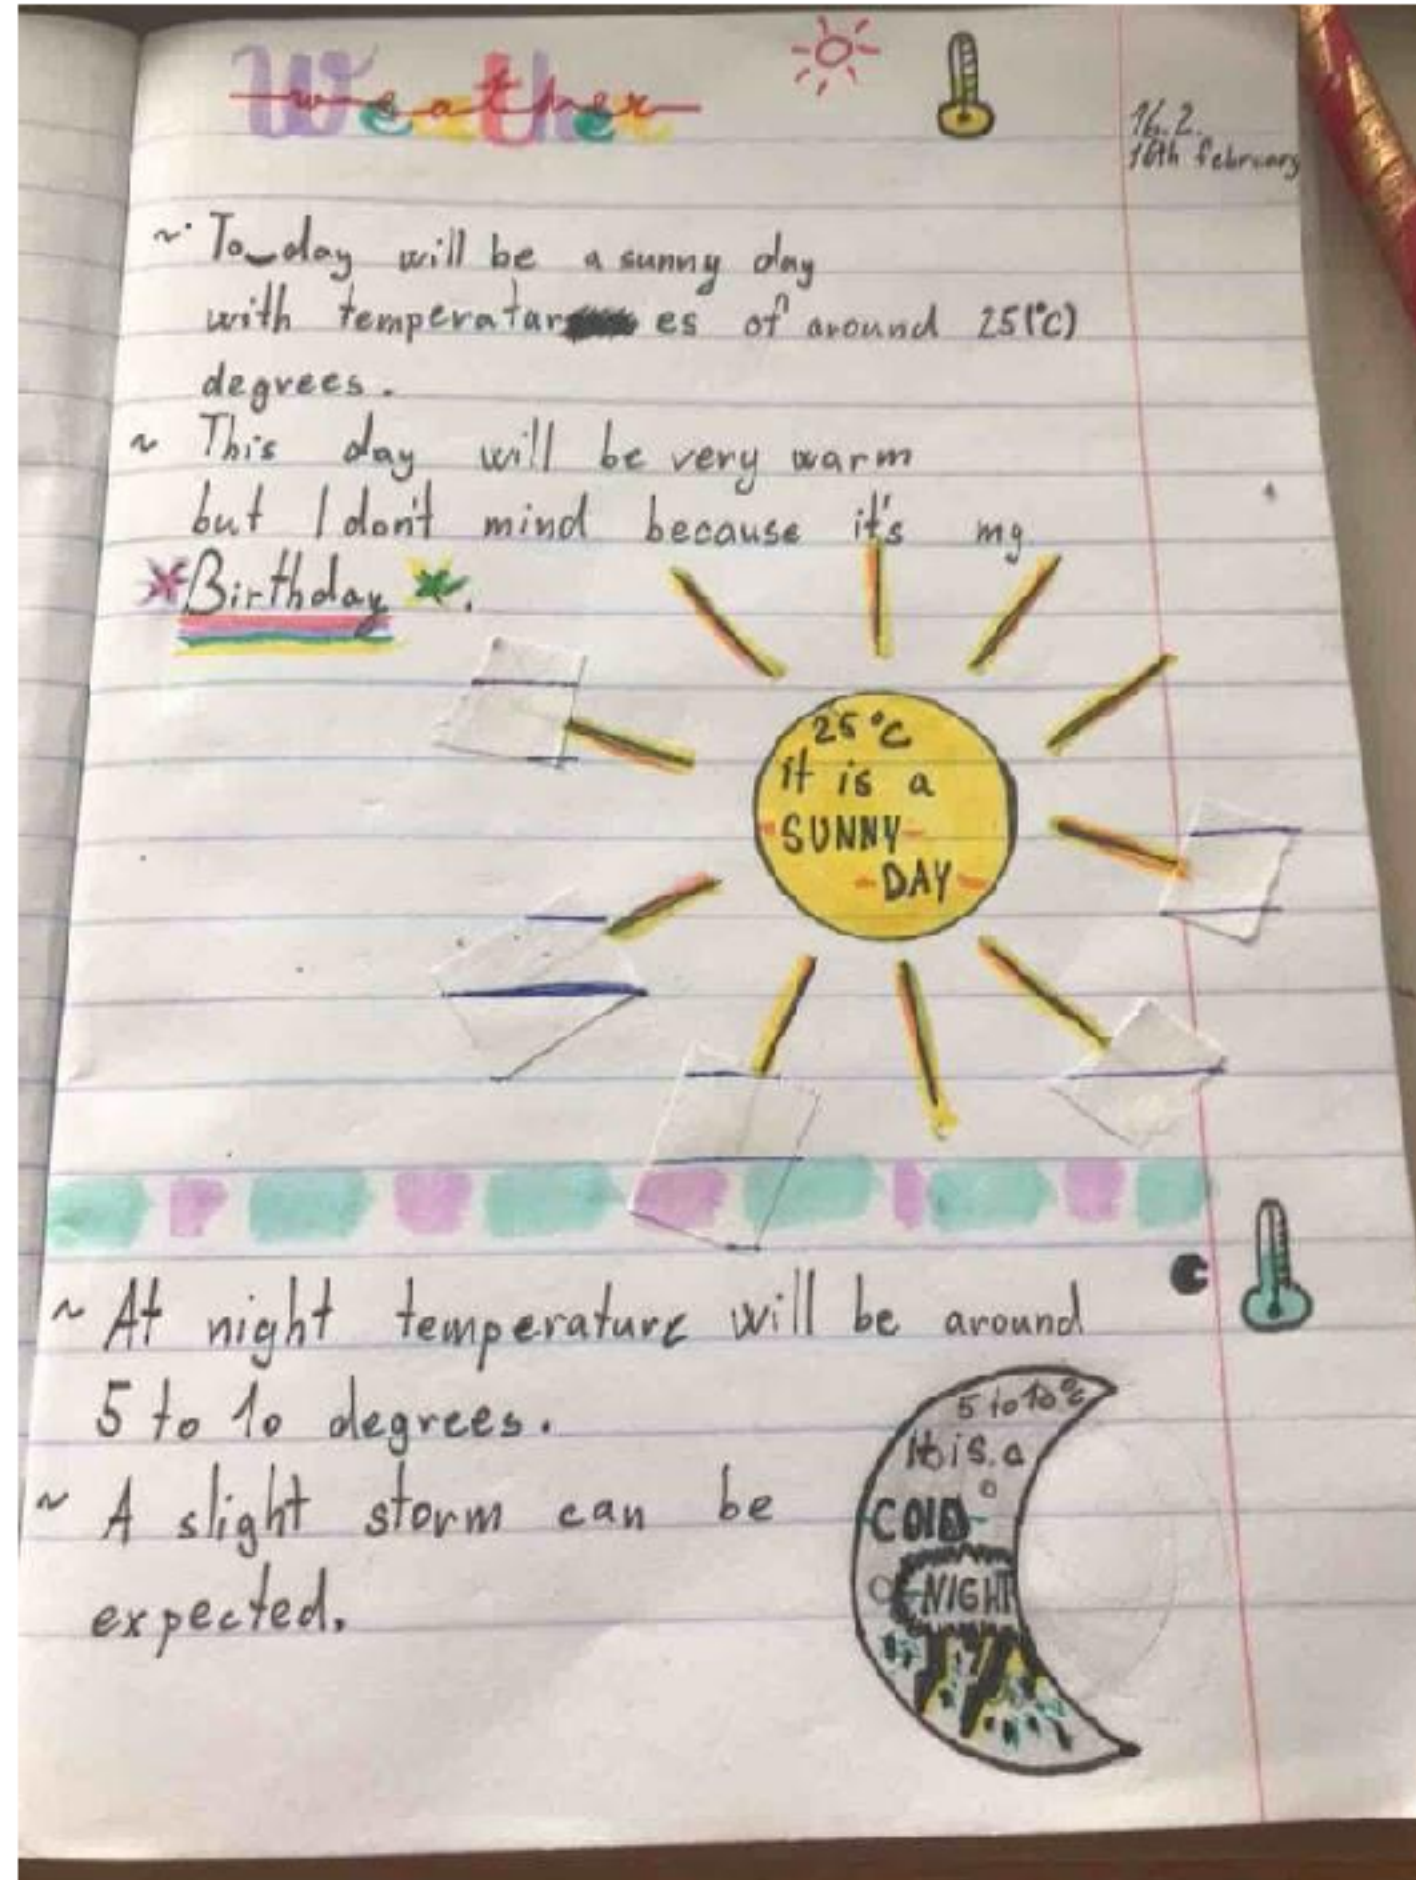 Weather
16.2.
16th february
~ To‿day will be a sunny day
with temperatares of around 25(°C)
degrees.
~ This day will be very warm
but I don't mind because it's my
Birthday.
25°C
it is a
SUNNY
DAY
~ At night temperature will be around
5 to 10 degrees.
~ A slight storm can be
expected.
5 to 10°C
It is a
COLD
NIGHT